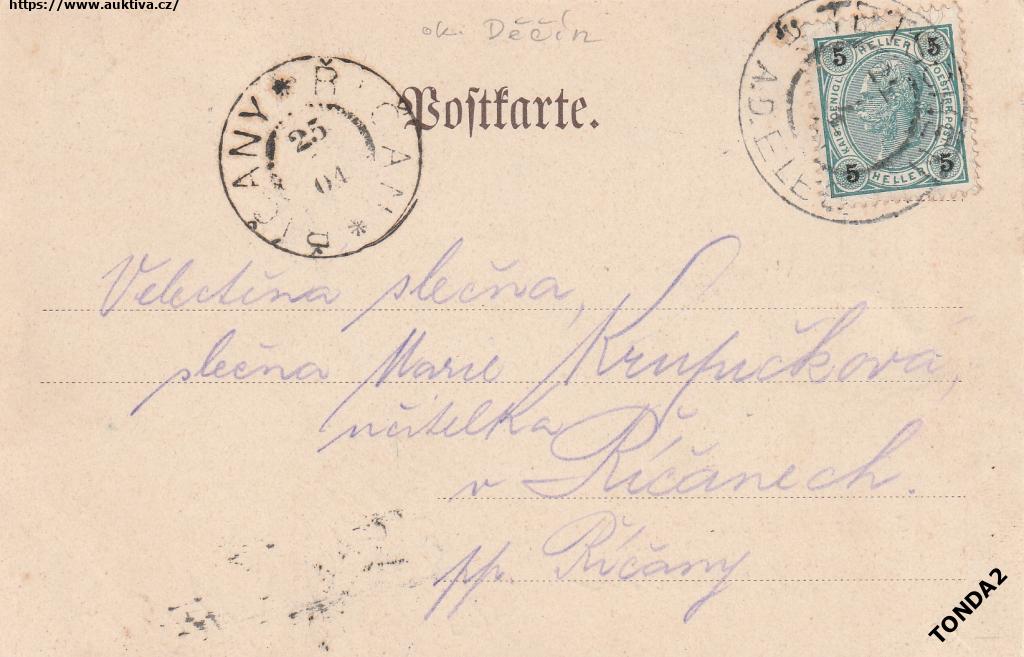 https://www.auktiva.cz/
ok. Děčín
Postkarte.
ŘÍČANY * ŘIČAN *
25
04
TET
A.D. ELBE
5 HELLER 5
KAIS. KOENIGL. OESTERR. POST
5 HELLER 5
Velectěna slečna,
slečna Marie Krupičková,
učitelka
v Říčanech.
pp. Říčany
TONDA2